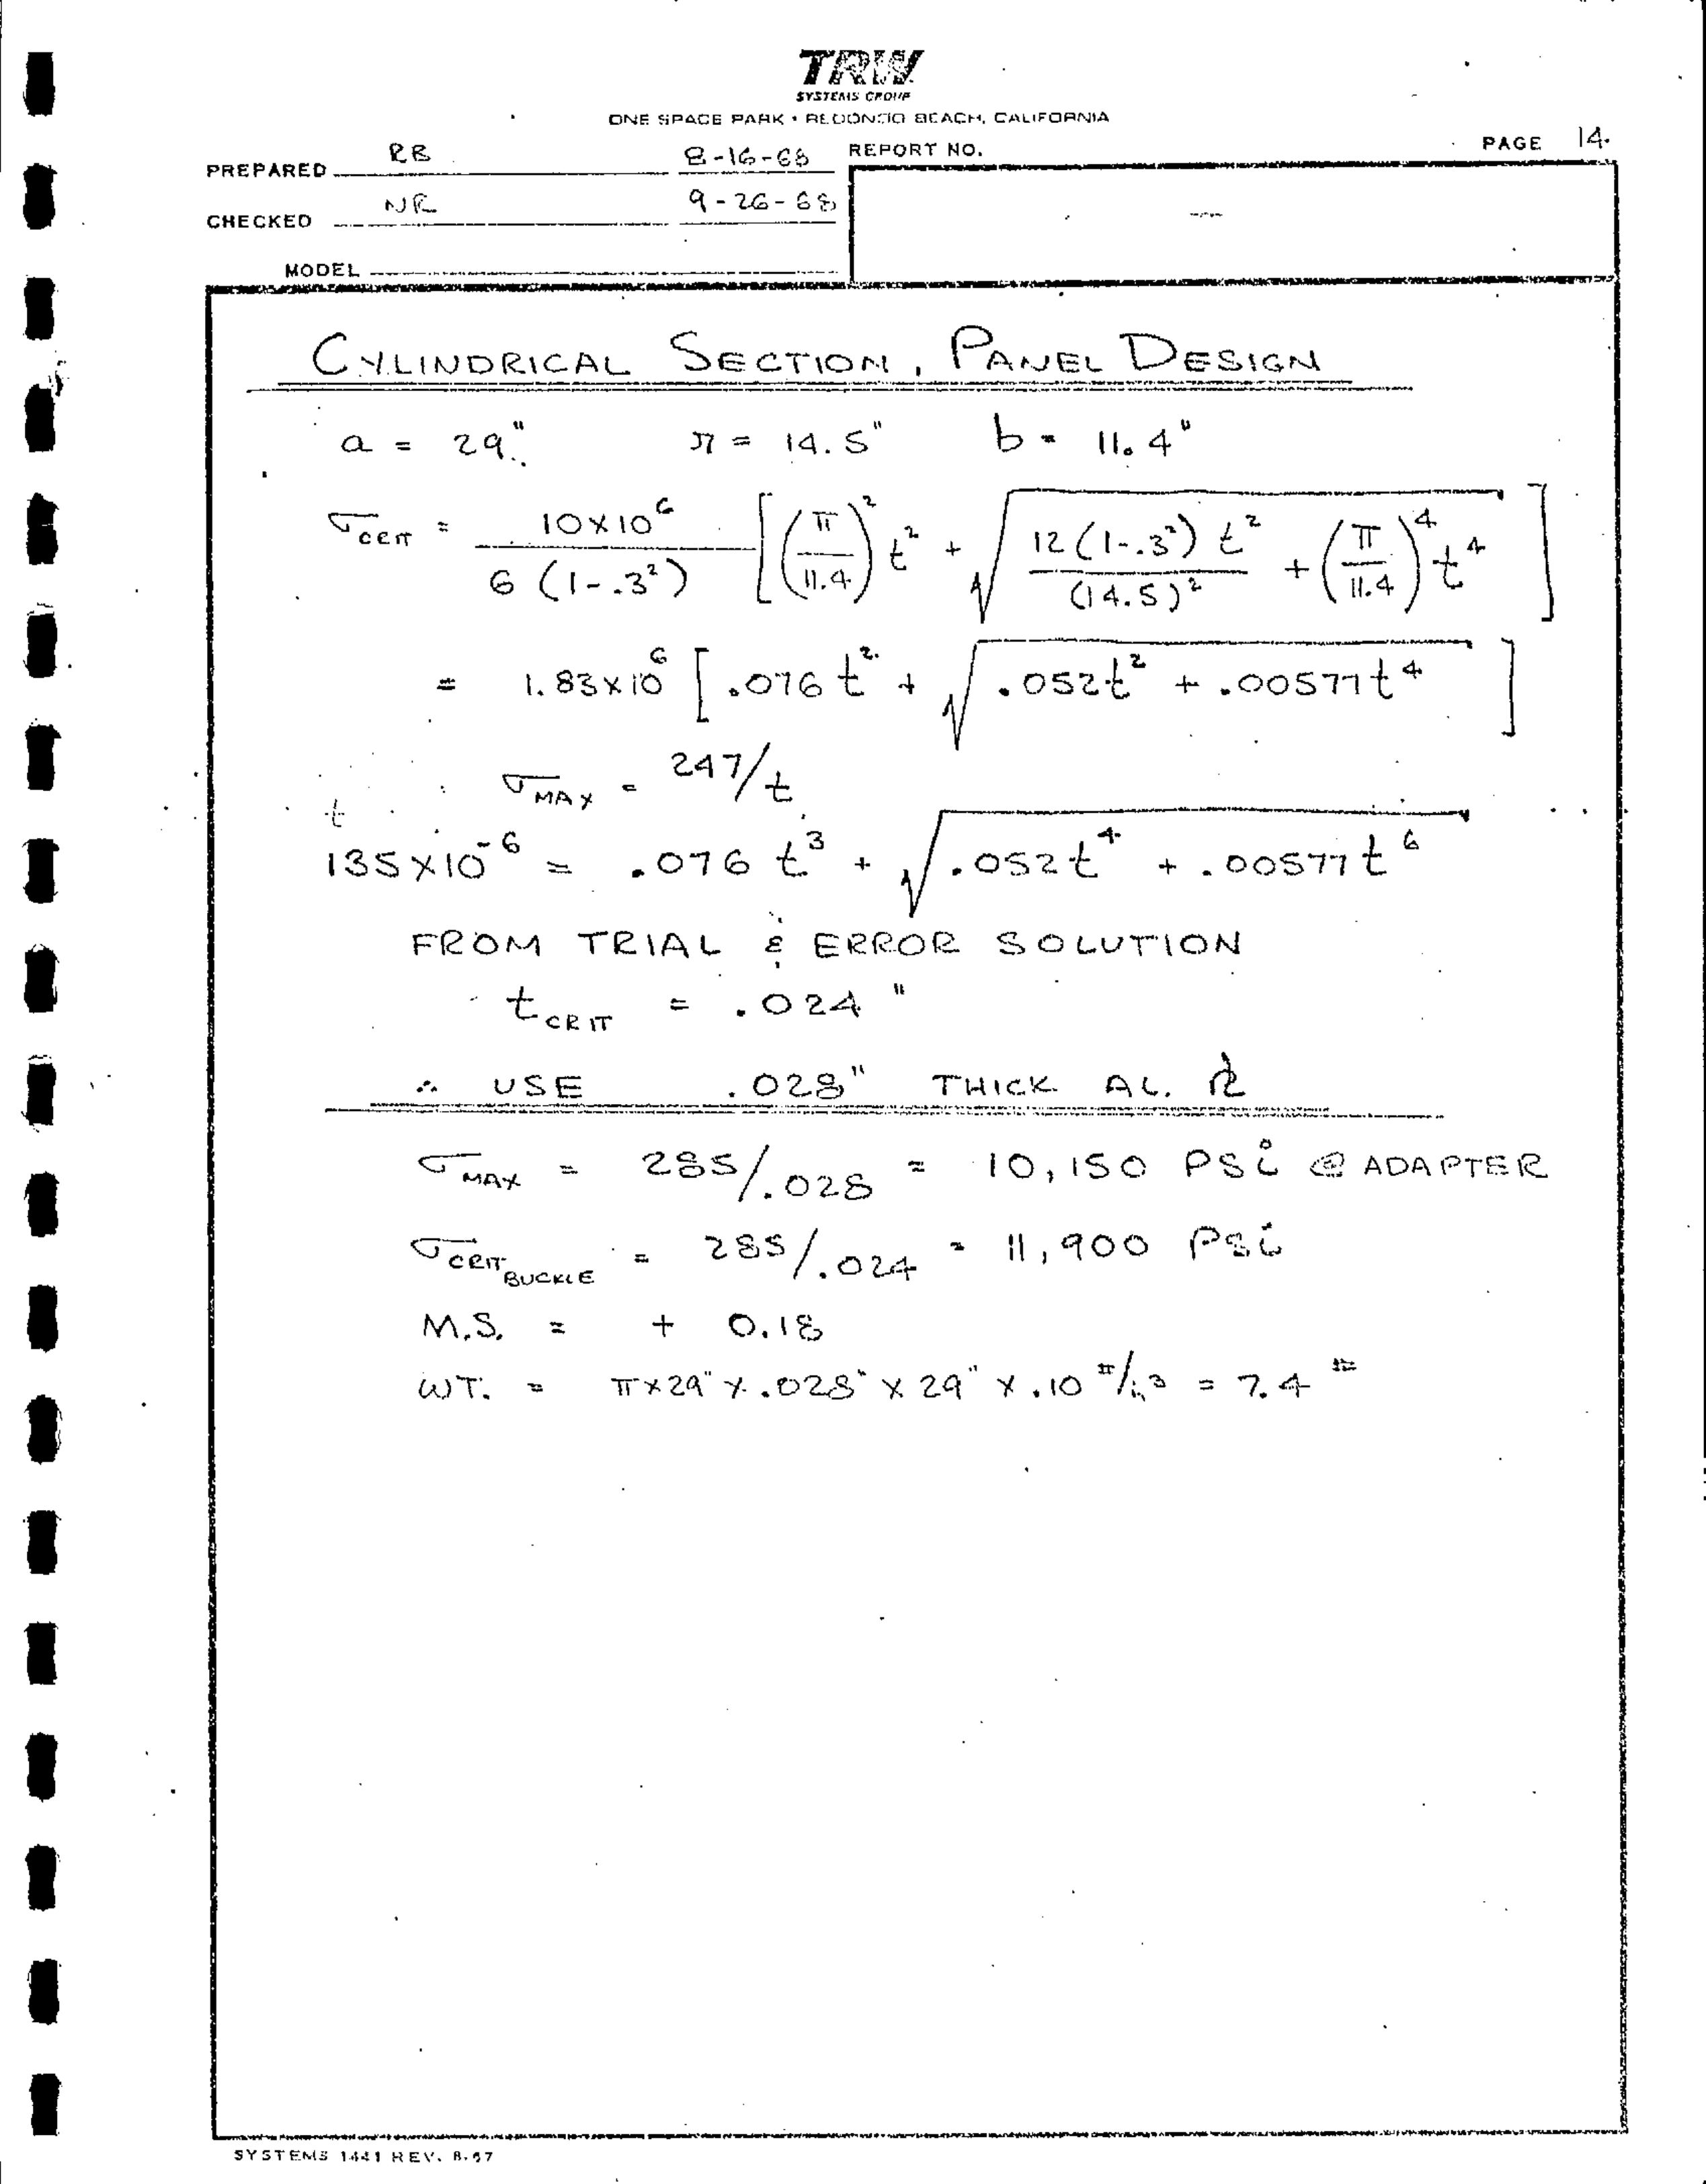 TRW
SYSTEMS GROUP
ONE SPACE PARK • REDONDO BEACH, CALIFORNIA
PREPARED RB 8-16-68 REPORT NO. PAGE 14.
CHECKED NR 9-26-68
MODEL
CYLINDRICAL SECTION, PANEL DESIGN
a = 29" r = 14.5" b = 11.4"
σCRIT = 10×10⁶ / 6 (1-.3²) [ (π/11.4)² t² + √( 12 (1-.3²) t² / (14.5)² + (π/11.4)⁴ t⁴ ) ]
= 1.83×10⁶ [ .076 t² + √( .052t² + .00577t⁴ ) ]
σMAX = 247/t
135×10⁻⁶ = .076 t³ + √( .052t⁴ + .00577t⁶ )
FROM TRIAL & ERROR SOLUTION
tCRIT = .024"
∴ USE .028" THICK AL. PL
σMAX = 285/.028 = 10,150 PSi @ ADAPTER
σCRIT BUCKLE = 285/.024 = 11,900 PSi
M.S. = + 0.18
WT. = π×29"×.028"×29"×.10 #/in³ = 7.4 #
SYSTEMS 1441 REV. 8-67